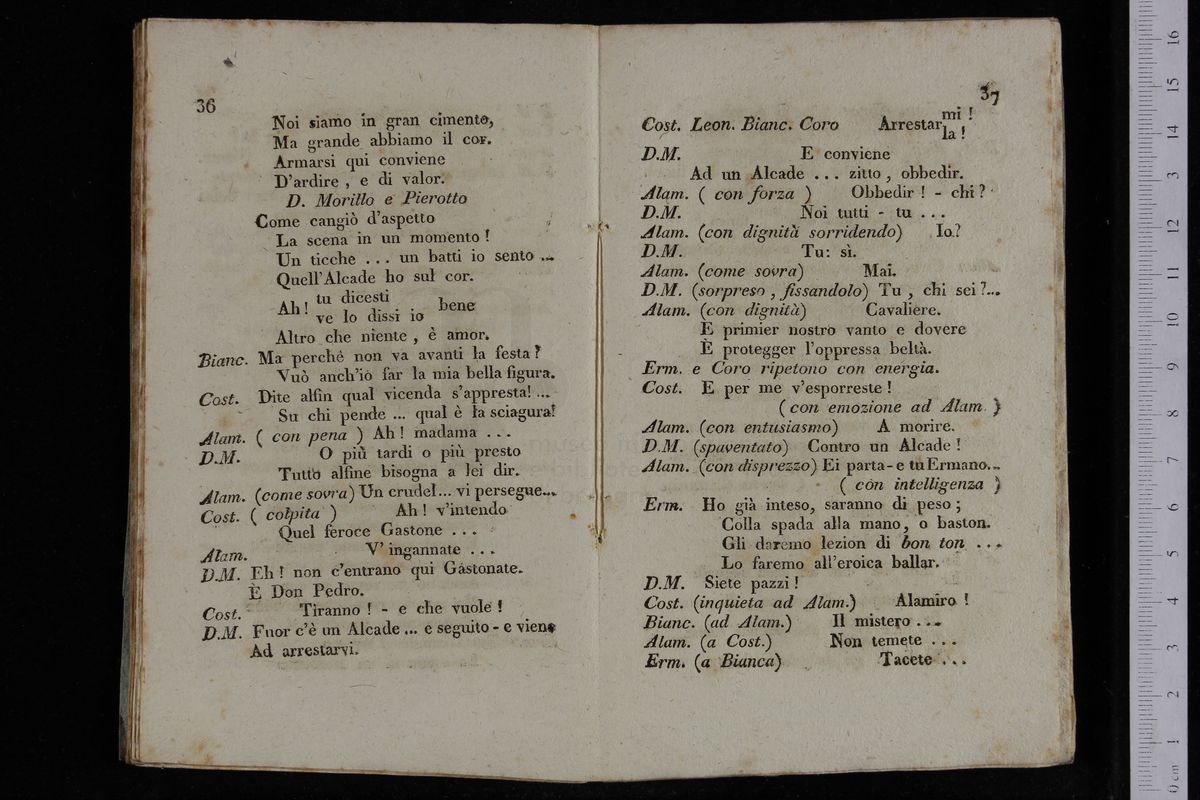 36
Noi siamo in gran cimento,
Ma grande abbiamo il cor.
Armarsi qui conviene
D'ardire , e di valor.
D. Morillo e Pierotto
Come cangiò d'aspetto
La scena in un momento !
Un ticche . . . un batti io sento ...
Quell'Alcade ho sul cor.
Ah ! tu dicesti bene
ve lo dissi io
Altro che niente , è amor.
Bianc. Ma perchè non va avanti la festa ?
Vuò anch'io far la mia bella figura.
Cost. Dite alfin qual vicenda s'appresta! ...
Su chi pende ... qual è la sciagura!
Alam. ( con pena ) Ah ! madama . . .
D.M. O più tardi o più presto
Tutto alfine bisogna a lei dir.
Alam. (come sovra) Un crudel... vi persegue...
Cost. ( colpita ) Ah ! v'intendo
Quel feroce Gastone . . .
Alam. V' ingannate . . .
D.M. Eh ! non c'entrano qui Gastonate.
È Don Pedro.
Cost. Tiranno ! - e che vuole !
D.M. Fuor c'è un Alcade ... e seguito - e viene
Ad arrestarvi.
37
Cost. Leon. Bianc. Coro Arrestarmi !
la !
D.M. E conviene
Ad un Alcade . . . zitto , obbedir.
Alam. ( con forza ) Obbedir ! - chi ?
D.M. Noi tutti - tu . . .
Alam. (con dignità sorridendo) Io?
D.M. Tu: sì.
Alam. (come sovra) Mai.
D.M. (sorpreso , fissandolo) Tu , chi sei ?...
Alam. (con dignità) Cavaliere.
E primier nostro vanto e dovere
È protegger l'oppressa beltà.
Erm. e Coro ripetono con energia.
Cost. E per me v'esporreste !
( con emozione ad Alam. )
Alam. (con entusiasmo) A morire.
D.M. (spaventato) Contro un Alcade !
Alam. (con disprezzo) Ei parta - e tu Ermano...
( con intelligenza )
Erm. Ho già inteso, saranno di peso ;
Colla spada alla mano, o baston.
Gli daremo lezion di bon ton . . .
Lo faremo all'eroica ballar.
D.M. Siete pazzi !
Cost. (inquieta ad Alam.) Alamiro !
Bianc. (ad Alam.) Il mistero . . .
Alam. (a Cost.) Non temete . . .
Erm. (a Bianca) Tacete . . .